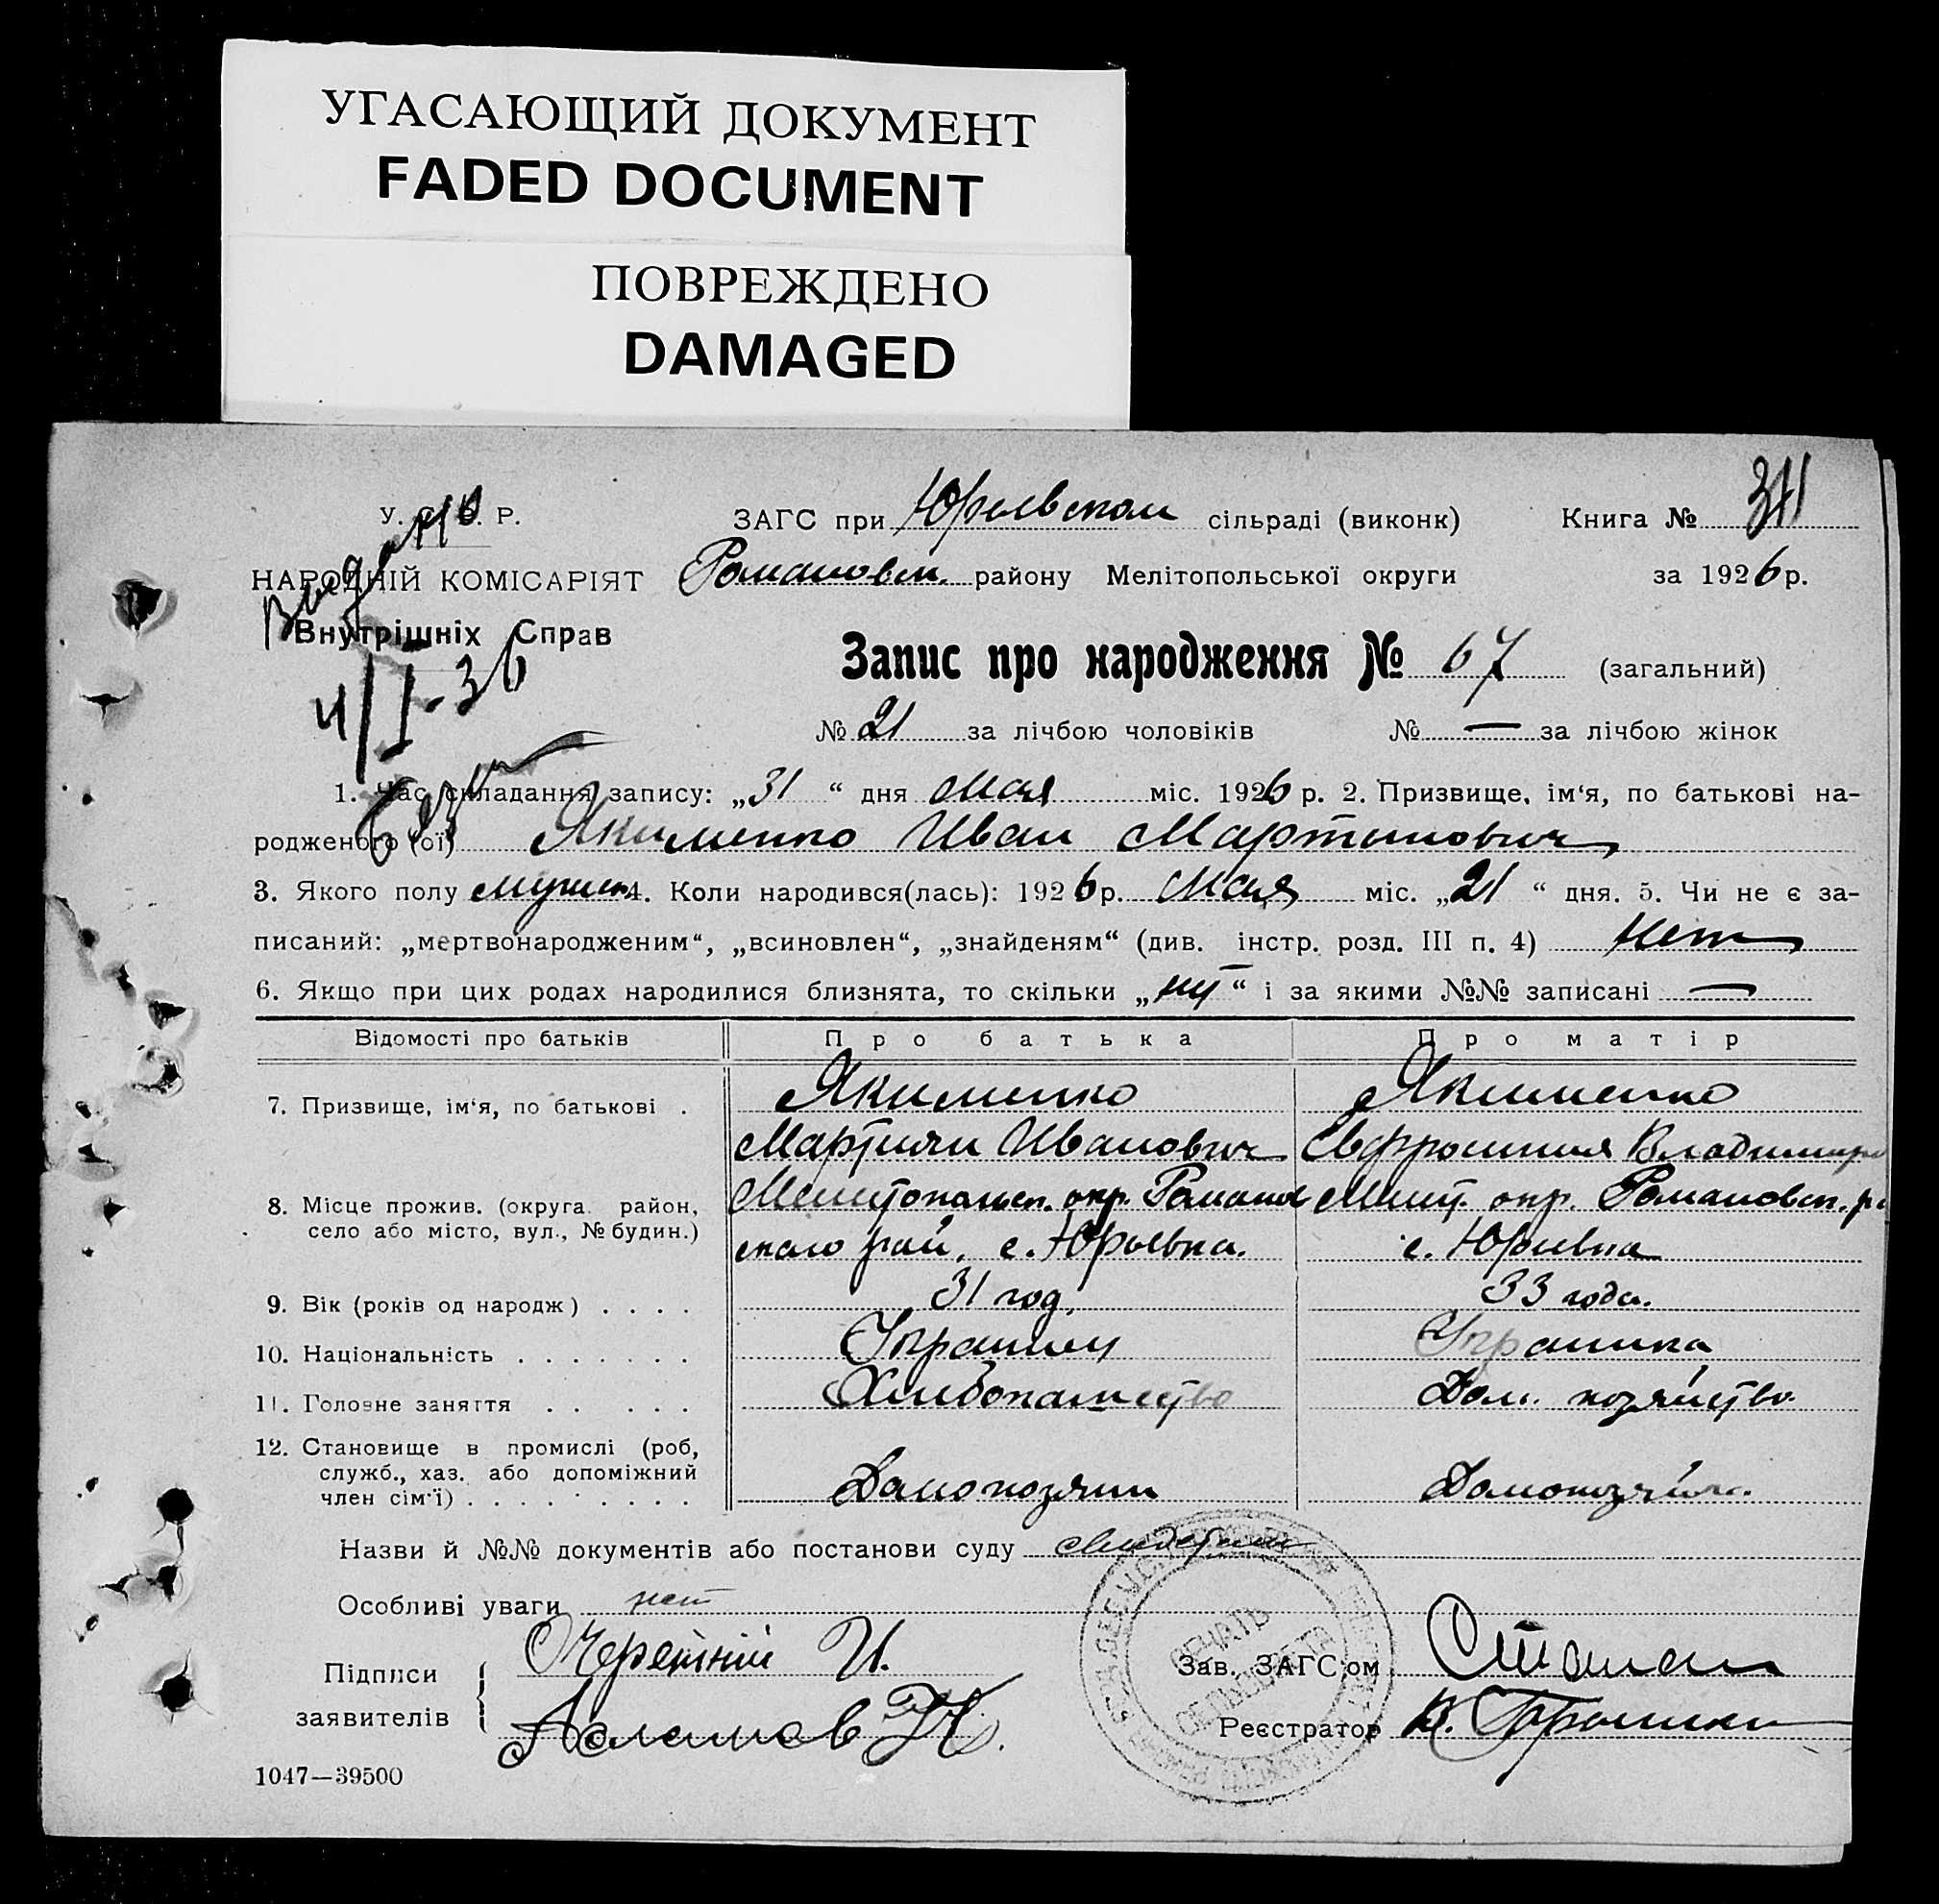 УГАСАЮЩИЙ ДОКУМЕНТ
FADED DOCUMENT
ПОВРЕЖДЕНО
DAMAGED
У. С. Р. Р.
НАРОДНІЙ КОМІСАРІЯТ
Внутрішніх Справ
Выдано
4/I-36
ЗАГС при Юрьевском сільраді (виконк) Книга №
Романовск. району Мелітопольської округи за 1926 р.
Запис про народження № 67 (загальний)
№ 21 за лічбою чоловіків № — за лічбою жінок
1. Час складання запису: „31“ дня мая міс. 1926 р. 2. Призвище, ім‘я, по батькові на-
родженого (ої) Якименко Иван Мартынович
3. Якого полу мужск 4. Коли народився(лась): 1926 р. мая міс. „21“ дня. 5. Чи не є за-
писаний: „мертвонародженим“, „всиновлен“, „знайденям“ (див. інстр. розд. III п. 4) нет
6. Якщо при цих родах народилися близнята, то скільки „нет“ і за якими №№ записані —
Відомості про батьків Про батька Про матір
7. Призвище, ім‘я, по батькові . Якименко Якименко
Мартиян Иванович Евфросиния Владимиро
8. Місце прожив. (округа район, Мелитопольск. окр. Романов Мелит. окр. Романовск. ра
село або місто, вул., № будин.) ского рай. с. Юрьевка. с. Юрьевка
9. Вік (років од народж) . . . . 31 год. 33 года.
10. Національність . . . . . . . Украинец Украинка
11. Головне заняття . . . . . . Хлибопашество Дом. хозяйство
12. Становище в промислі (роб,
служб., хаз. або допоміжний
член сім‘ї) . . . . . . . . . Домохозяин Домохозяйка.
Назви й №№ документів або постанови суду
Особливі уваги нет
Підписи
заявителів
И.
Зав. ЗАГС‘ом
Реєстратор
ПЕЧАТЬ
СЕЛЬСОВЕТА
1047—39500